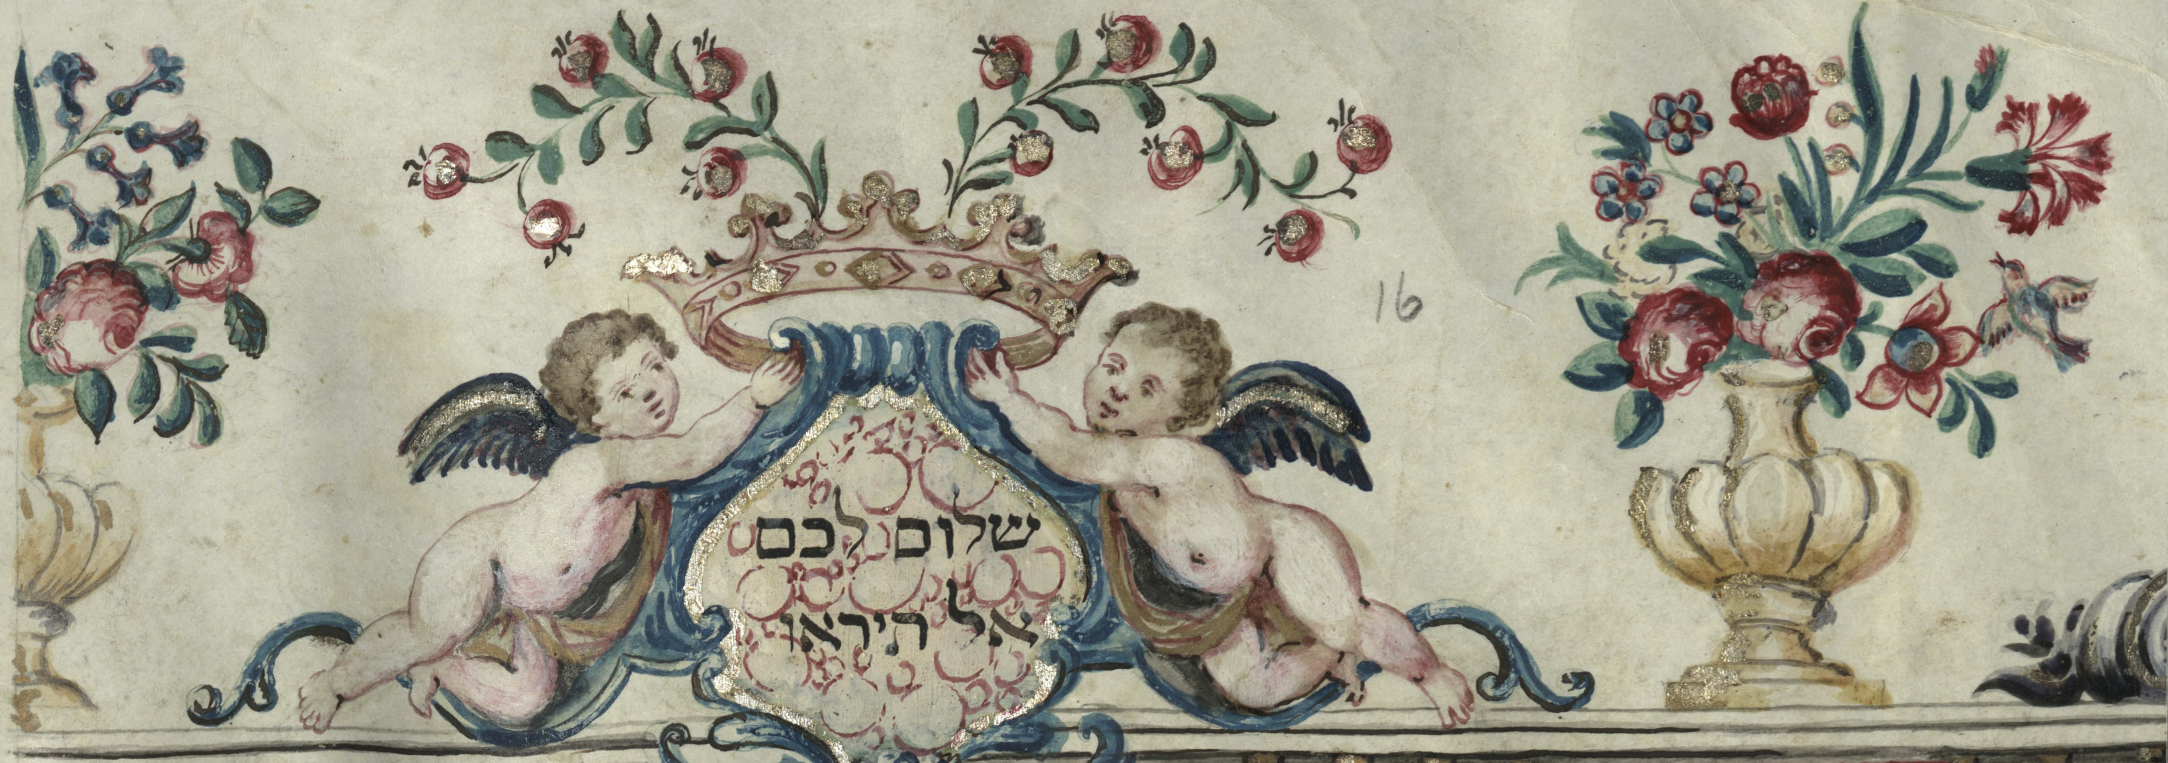 16
שלום לכם
אל תיראו